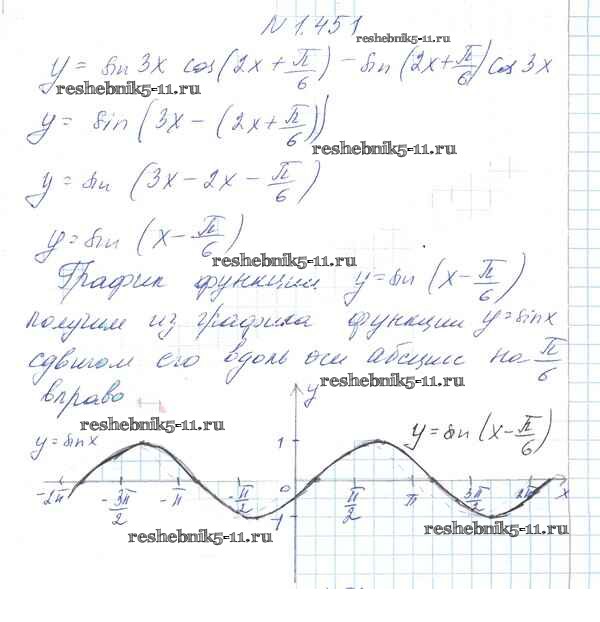 N 1.451
reshebnik5-11.ru
y = sin 3x cos(2x + π/6) - sin(2x + π/6) cos 3x
reshebnik5-11.ru
y = sin(3x - (2x + π/6))
reshebnik5-11.ru
y = sin (3x - 2x - π/6)
y = sin (x - π/6)
reshebnik5-11.ru
График функции y = sin (x - π/6)
получим из графика функции y = sin x
сдвигом его вдоль оси абсцисс на π/6
reshebnik5-11.ru
вправо
y
reshebnik5-11.ru
y = sin x
1
y = sin (x - π/6)
-2π -3π/2 -π -π/2 0 π/2 π 3π/2 2π x
-1
reshebnik5-11.ru
reshebnik5-11.ru